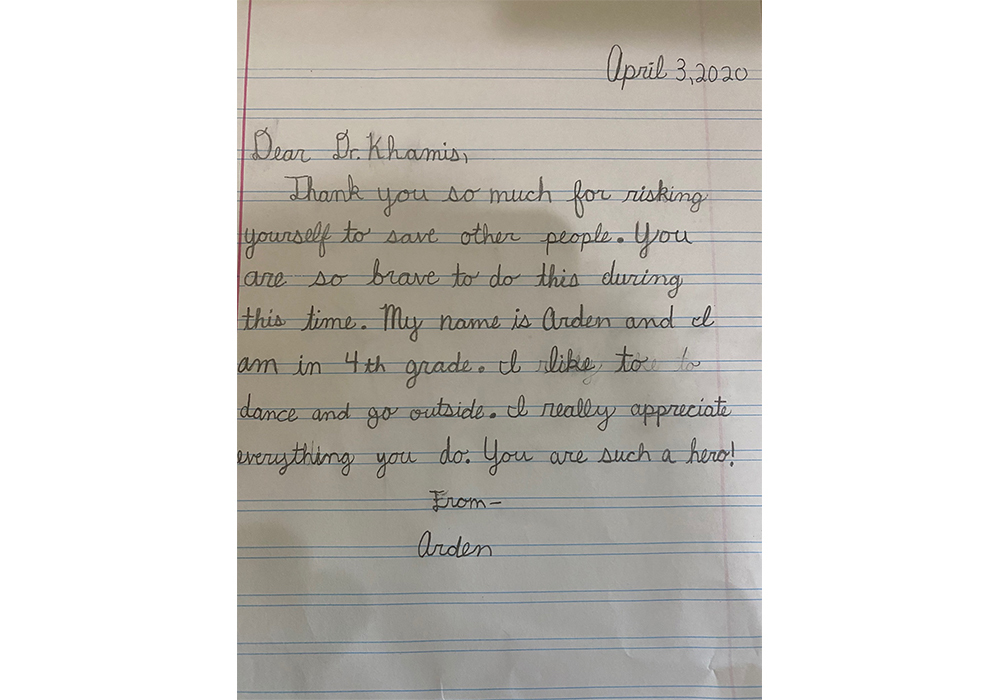 April 3, 2020
Dear Dr. Khamis,
Thank you so much for risking
yourself to save other people. You
are so brave to do this during
this time. My name is Arden and I
am in 4th grade. I like to
dance and go outside. I really appreciate
everything you do. You are such a hero!
From-
Arden